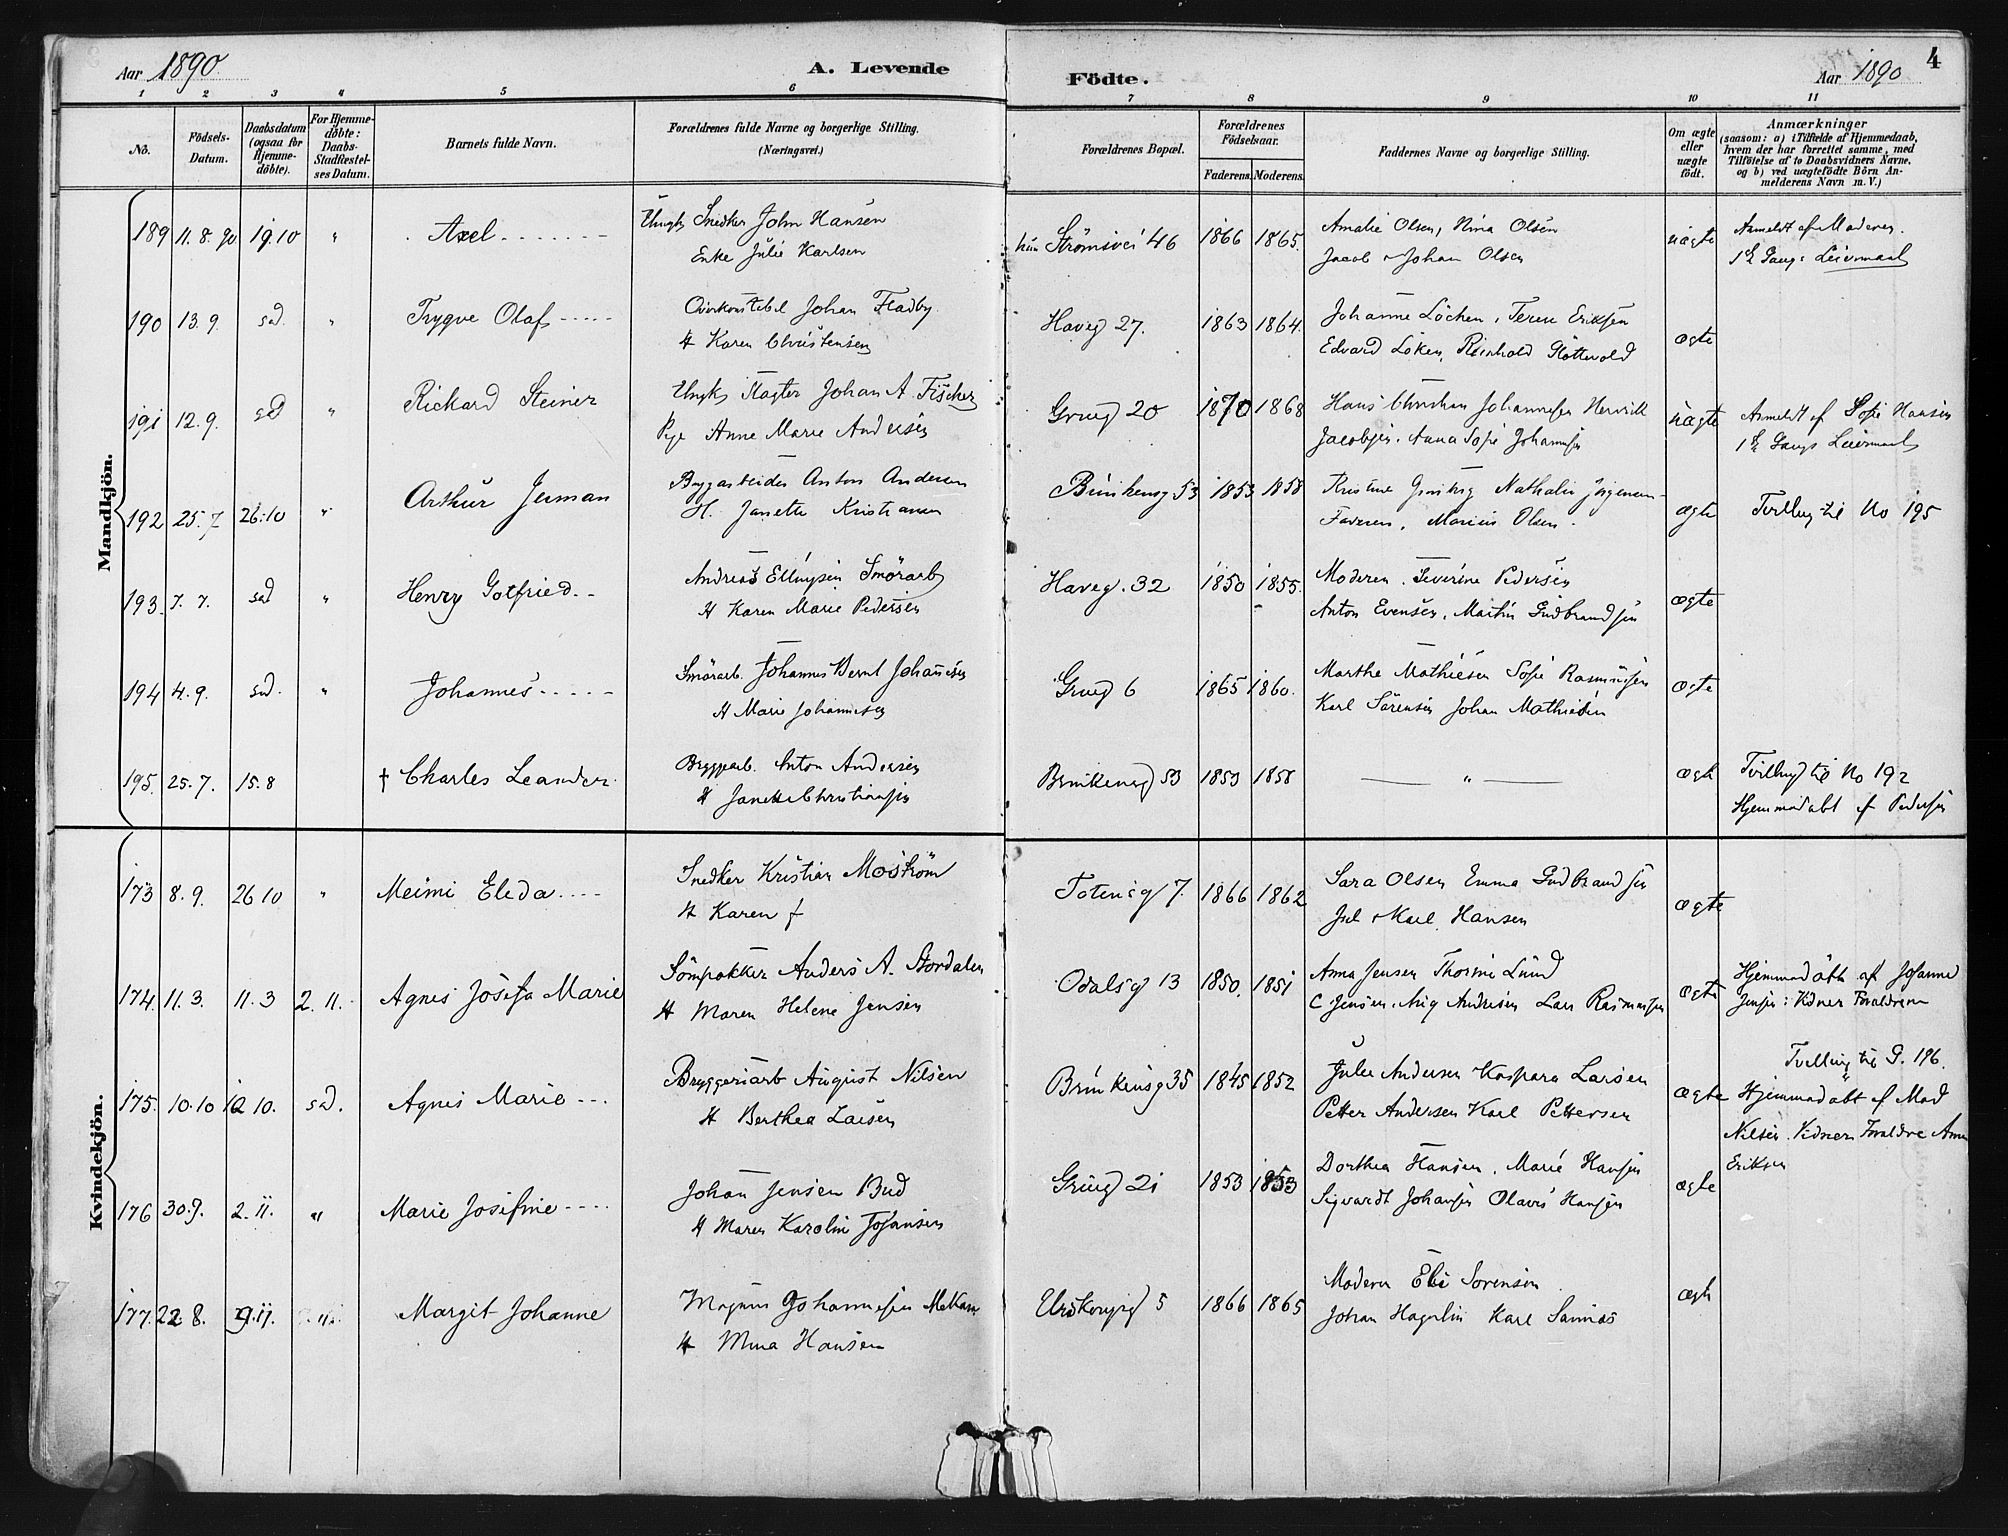 Aar 1890
A. Levende
Födte.
Aar 1890
4
1 2 3 4 5 6 7 8 9 10 11
No.
Födsels-Datum.
Daabsdatum (ogsaa for Hjemme-döbte).
For Hjemme-döbte: Daabs-Stadfæstel-ses Datum.
Barnets fulde Navn.
Forældrenes fulde Navne og borgerlige Stilling.
(Næringsvei.)
Forældrenes Bopæl.
Forældrenes Födselsaar.
Faderens. Moderens.
Faddernes Navne og borgerlige Stilling.
Om ægte eller uægte födt.
Anmærkninger
(saasom: a) i Tilfælde af Hjemmedaab, hvem der har forrettet samme, med Tilföielse af to Daabsvidners Navne, og b) ved uægtefödte Börn An-melderens Navn m. V.)
Mandkjön.
189 11.8.90 19.10 " Axel
Ungk Snedker John Hansen
Enke Julie Karlsen
hun Strömsvei 46 1866 1865.
Amalie Olsen, Nina Olsen
Jacob & Johan Olsen
uægte
Anmeldt af Moderen.
1ste Gangs Leiermaal
190 13.9. sd. " Trygve Olaf
Overkonstabel Johan Fladby
H Karen Christensen
Haveg 27. 1863 1864.
Johanne Löchen, Terese Eriksen
Edvard Löken, Reinhold
ægte
191 12.9. sd " Rickard Steiner
Ungk Slagter Johan A. Fischer
Pige Anne Marie Andersen
Grueg 20 1870 1868
Hans Christian Johannesen
Jacobsen. Anna Sofie Johannesen
uægte
Anmeldt af Sofie Hansen
1ste Gangs Leiermaal
192 25.7 26.10 " Arthur Jerman
Bryggarbeider Anton Andersen
H. Janette Kristiansen
Brinkensg 53 1853 1858
Kristine Nathalie Jörgensen
Faderen, Marius Olsen.
ægte
Tvilling til No 195
193. 7.7. sd " Henry Gotfried
Andreas Ellingsen Smörarb
H Karen Marie Pedersen
Haveg. 32 1850 1855.
Moderen. Severine Pedersen
Anton Evensen, Martin Gudbrandsen
ægte
194 4.9. sd. " Johannes
Smörarb. Johannes Bernt Johannesen
H Marie Johannesen
Grueg 6 1865 1860.
Marthe Mathiesen Sofie Rasmussen
Karl Sörensen Johan Mathiesen
ægte
195. 25.7. 15.8 † Charles Leander
Bryggarb. Anton Andersen
H Janette Christiansen
Brinkensg 53 1853 1858
"
ægte
Tvilling til No 192
Hjemmedöbt af Pedersen
Kvindekjön.
173 8.9. 26 10 " Meimi Eleda
Snedker Kristian Moström
H Karen f
Totensg 7. 1866 1862
Sara Olsen Emma Gudbrandsen
Jul & Karl Hansen
ægte
174. 11.3. 11.3 2.11. Agnes Josefa Marie
Sömpakker Anders A. Stordalen
H Maren Helene Jensen
Odalsg 13 1850. 1851
Anna Jensen Thorine Lund
C. Jensen. Aug Andresen Lars Rasmussen
ægte
Hjemmedöbt af Johanne
Jensen: Vidner Forældrene
175. 10.10 12 10. sd. Agnes Marie
Bryggeriarb August Nilsen
H Berthea Larsen
Brinkensg 35 1845 1852
Julie Andersen Kaspara Larsen
Petter Andersen Karl Pettersen
ægte
Tvilling til G. 196.
Hjemmedöbt af Mad
Nilsen. Vidner Forældre Anne
Eriksen
176 30.9. 2.11. " Marie Josefine
Johan Jensen Bud
H Maren Karoline Johansen
Grueg 21 1853 1853
Dorthea Hansen, Marie Hansen
Sigvardt Johansen Olaves Hansen
ægte
177. 22.8. 9.11. Margit Johanne
Magnus Johannesen Mekan
H Mina Hansen
Urskougsg 5 1866 1865
Moderen Elise Sorensen
Johan Hagelin Karl Sannæs
ægte